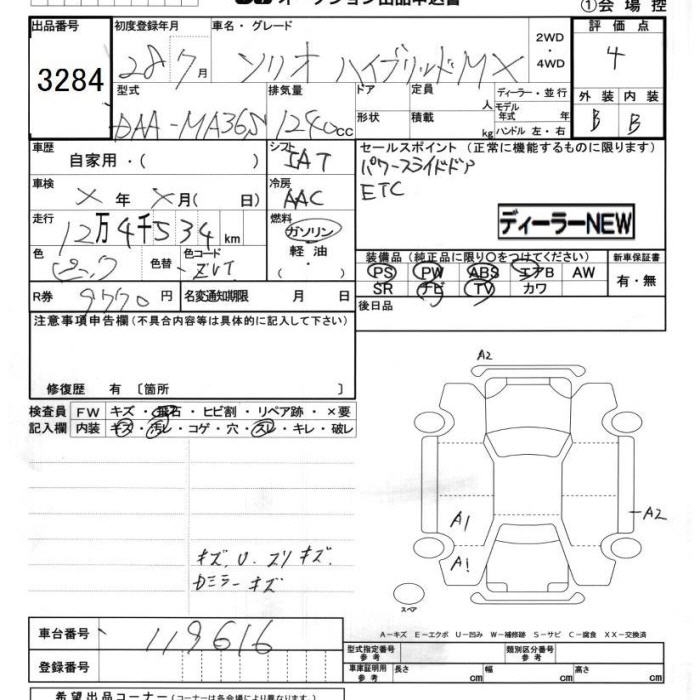 オークション出品申込書
①会場控
出品番号 3284
初度登録年月 28 7月
車名・グレード ソリオ ハイブリッドMX
2WD・4WD
評価点 4
外装 B 内装 B
型式 DAA-MA36S
排気量 1240cc
ドア 形状
定員 人
積載 kg
ディーラー・並行
モデル年式 年
ハンドル 左・右
車歴 自家用・( )
シフト IAT
車検 × 年 × 月( 日)
冷房 AAC
走行 12万4千534km
燃料 ガソリン・軽油・
色 ピンク 色替 色コード ZVT
R券 9770円 名変通知期限 月 日
セールスポイント(正常に機能するものに限ります)
パワースライドドア
ETC
ディーラーNEW
装備品(純正品に限り○をつけてください) 新車保証書
PS PW ABS エアB AW 有・無
SR ナビ TV カワ
後日品
注意事項申告欄(不具合内容等は具体的に記入して下さい)
修復歴 有〔箇所 〕
検査員 FW キズ・飛石・ヒビ割・リペア跡・×要
記入欄 内装 キズ・汚レ・コゲ・穴・スレ・キレ・破レ
A2
A1
A2
A1
スペア
キズ、U、スリキズ、
Dミラーキズ
A-キズ E-エクボ U-凹み W-補修跡 S-サビ C-腐食 XX-交換済
車台番号 119616
登録番号
型式指定番号 参考 類別区分番号 参考
車庫証明用 参考 長さ cm 幅 cm 高さ cm
希望出品コーナー(コーナー名は各会場により異なります)